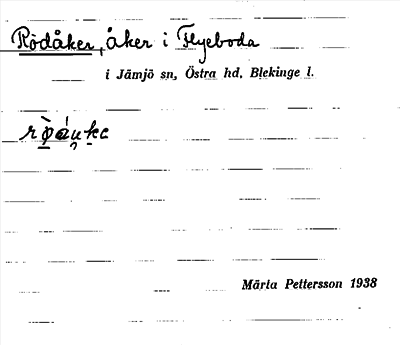 Rödåker, åker i Flyeboda
i Jämjö sn, Östra hd, Blekinge l.
Märta Pettersson 1938